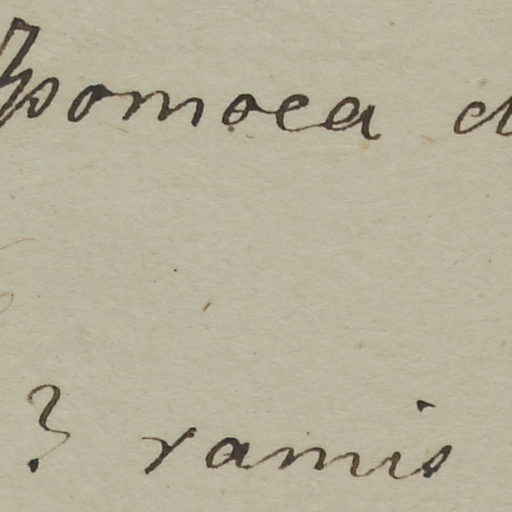 Ipomoea
? ramis